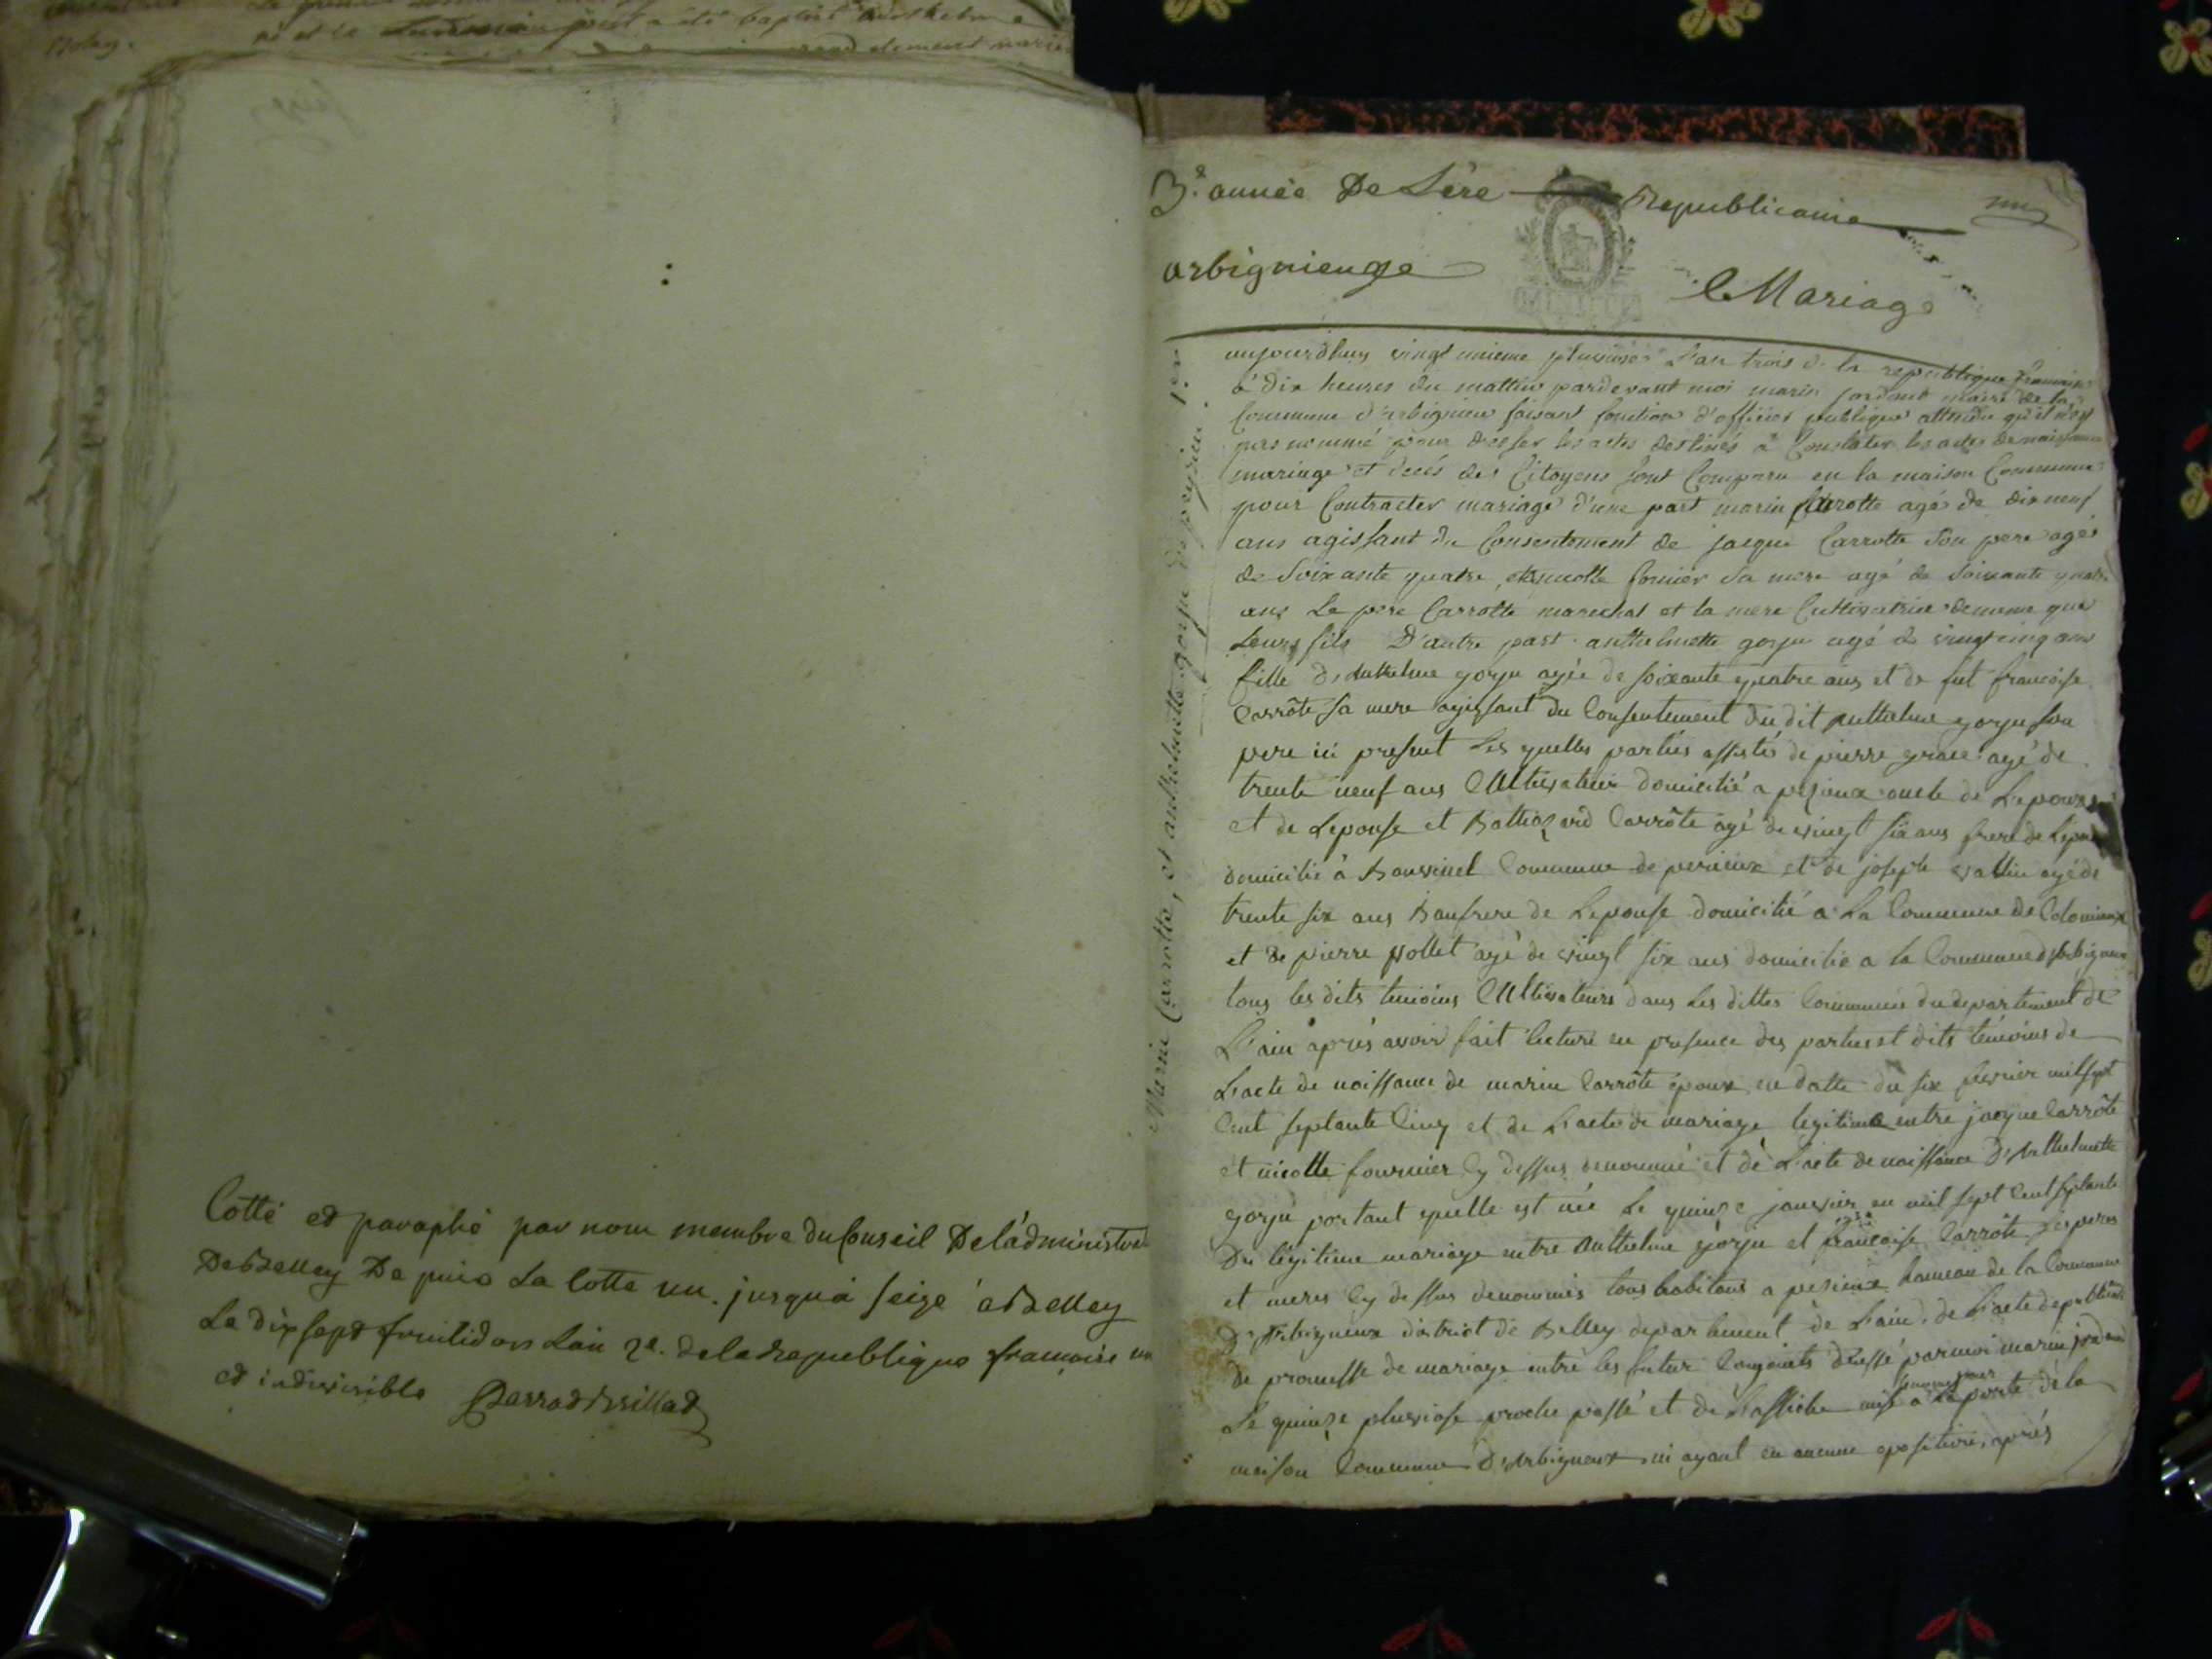 né et le baptisé
Cotté et paraphé par nous membre du Conseil De l'administra
De Belley De puis La Cotte un. jusqu'a seize á Belley
Le dix sept fructidor L'an 2e. de la republique francaise un
et indivisible
3e. année De L'ère Republicaine un
arbignieuxe Mariage
Marin Carrotte, et anthelmette gorju de peyzieu 1er.
aujourdhuy vingt unieme pluviose L'an trois de la republique francaise
à Dix heures du mattin pardevant moi marin jordant maire de la
Commune d'arbignieu faisant fonction d'officier publique attendu qu'il n'est
pas nommé pour dresser les actes destinés a Constater les actes de naissance
mariage et decés des Citoyens sont Comparu en la maison Commune
pour Contracter mariage d'une part marin Carrotte agé de dix neuf
ans agissant du Consentement de jacque Carrotte Son pere agés
de Soixante quatre et nicolle fornier Sa mere agé de Soixante quatre
ans Le pere Carrotte marechal et la mere Cultivatrice de meme que
Leurs fils D'autre part anthelmette gorju agé de vingt cinq ans
fille d'Anthelme gorju agée de soixante quatre ans et de fut francoise
Carrôte sa mere agissant du Consentement du dit Anthelme gorju son
pere ici present Les quelles parties assistés de pierre grace agé de
trente neuf ans Cultivateur domicilié a pezieux oncle de L'epoux
et de Lepouse et Baltiazard Carrôte agé de vingt six ans frere de Lepoux
domicilié à Bouvinel Commune de perieux et de joseph vallin agé de
trente six ans Baufrere de Lepouse domicilié a La Commune de Colomieux
et de pierre pollet agé de vingt six ans domicilié a la Commune d'Arbignieux
tous les dits temoins Cultivateurs dans Les dittes Communes du departement de
L'ain aprés avoir fait lecture en presence des parties et dits temoins de
L'acte de naissance de marin Carrôte époux en datte du six fevrier mil sept
Cent septante Cinq et de L'acte de mariage legitime entre jacque Carrôte
et nicolle fournier Cy dessus denommé et de L'acte de naissance D'Anthelmette
gorju portant quelle est née Le quinze janvier en mil sept Cent septante
Du légitime mariage entre Anthelme gorju et francoise Carrôte ses peres
et meres Cy dessus denommés tous habitans a pezieux hameau de la Commune
D'Arbignieux district de Belley departement de L'ain. de L'acte de publication
de promesse de mariage entre les futur Conjoints dressé par moi marin jordant
Le quinze pluviose proche passé et de L'affiche mise a La porte de la
maison Commune D'Arbignieux ni ayant eu aucune opositions, aprés